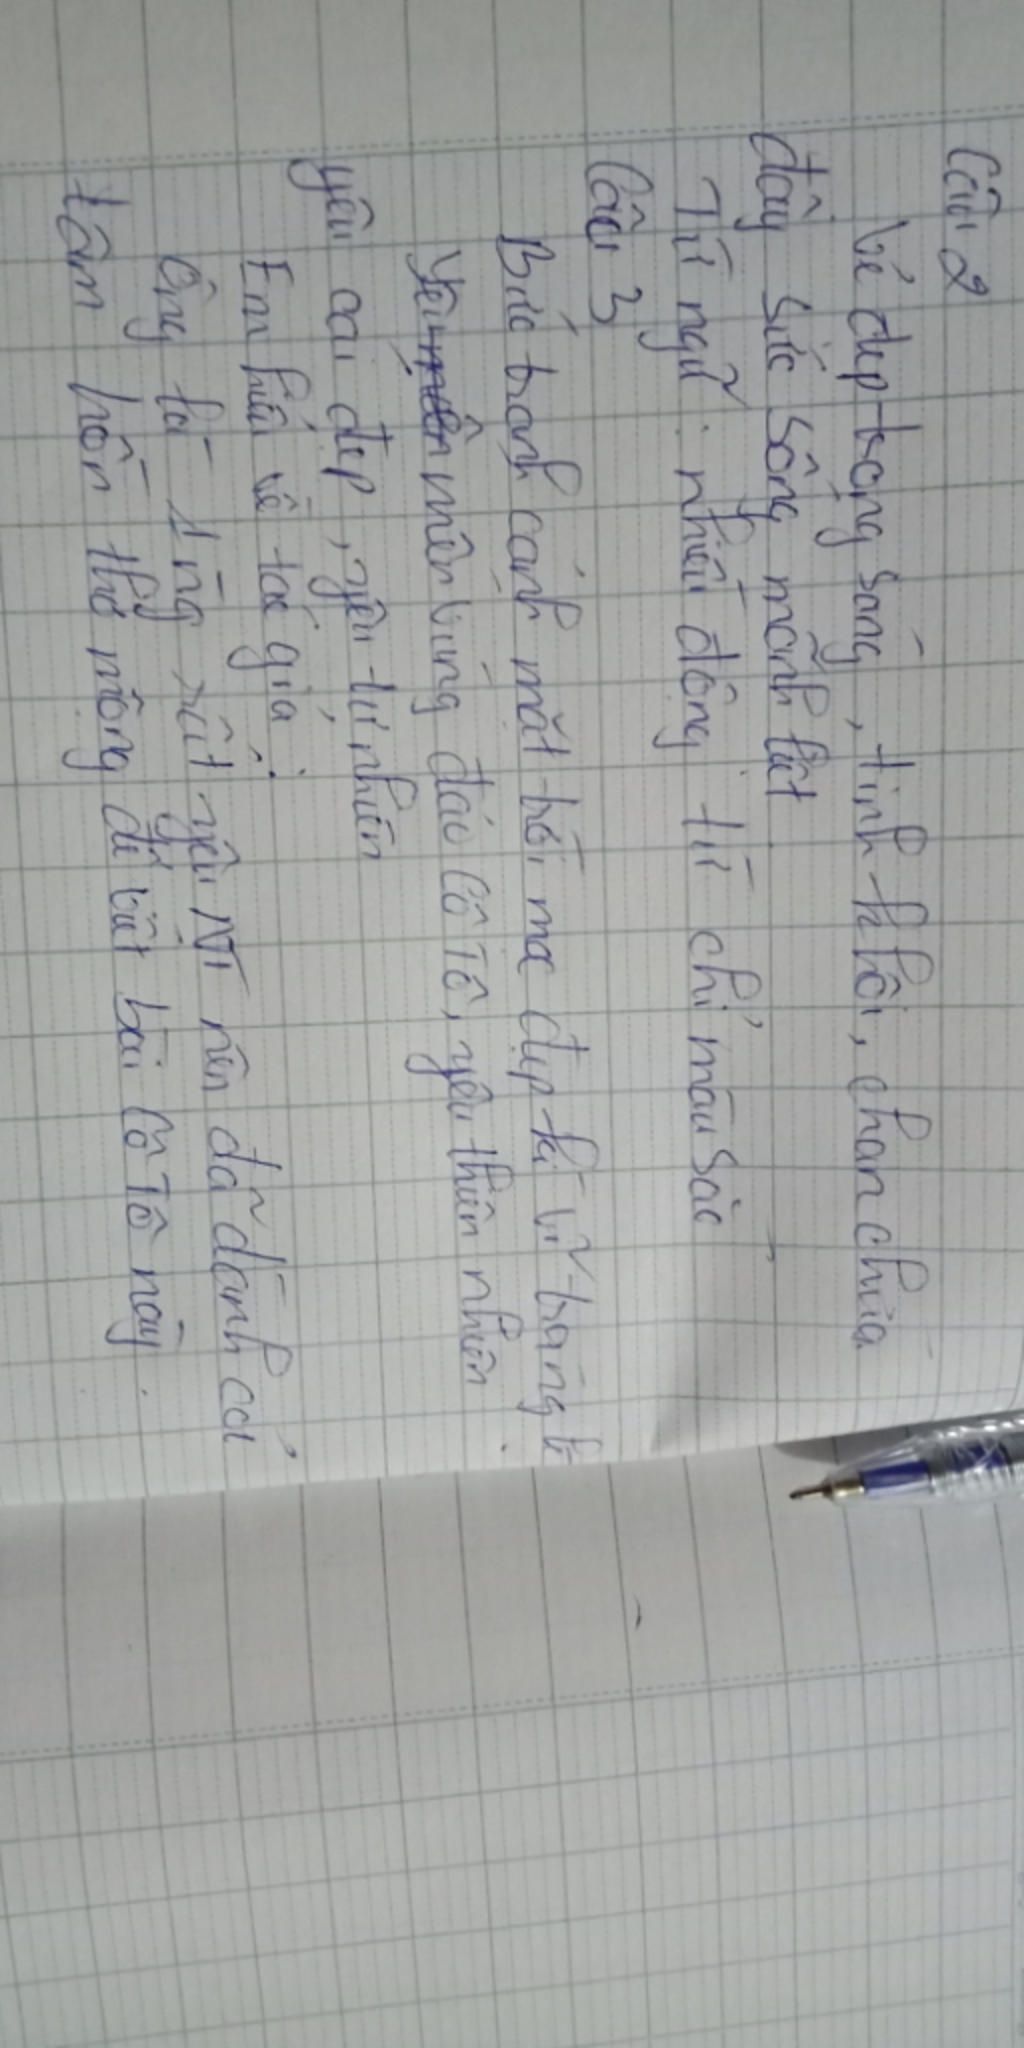 Câu 2
Vẻ đẹp trong sáng, tinh khôi, chan chứa
đầy sức sống mãnh liệt
Từ ngữ: nhiều động từ chỉ màu sắc
Câu 3
Bức tranh cảnh mặt trời mọc đẹp kì vĩ tráng
Yêu mến vùng đảo Cô Tô, yêu thiên nhiên
yêu cái đẹp, yêu tự nhiên
Em hiểu về tác giả:
Ông là rất yêu NT nên đã dành cả
tâm hồn thơ mộng để viết bài Cô Tô này.